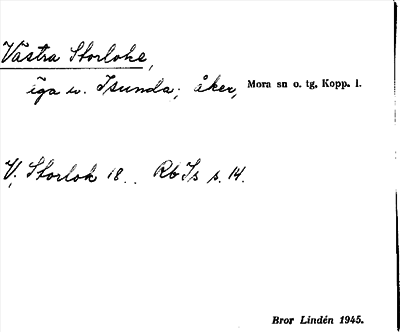 Västra Storlohe,
äga u. Isunda; åker, Mora sn o. tg, Kopp. l.
V. Storlok 18.. Rb Is s. 14.
Bror Lindén 1945.